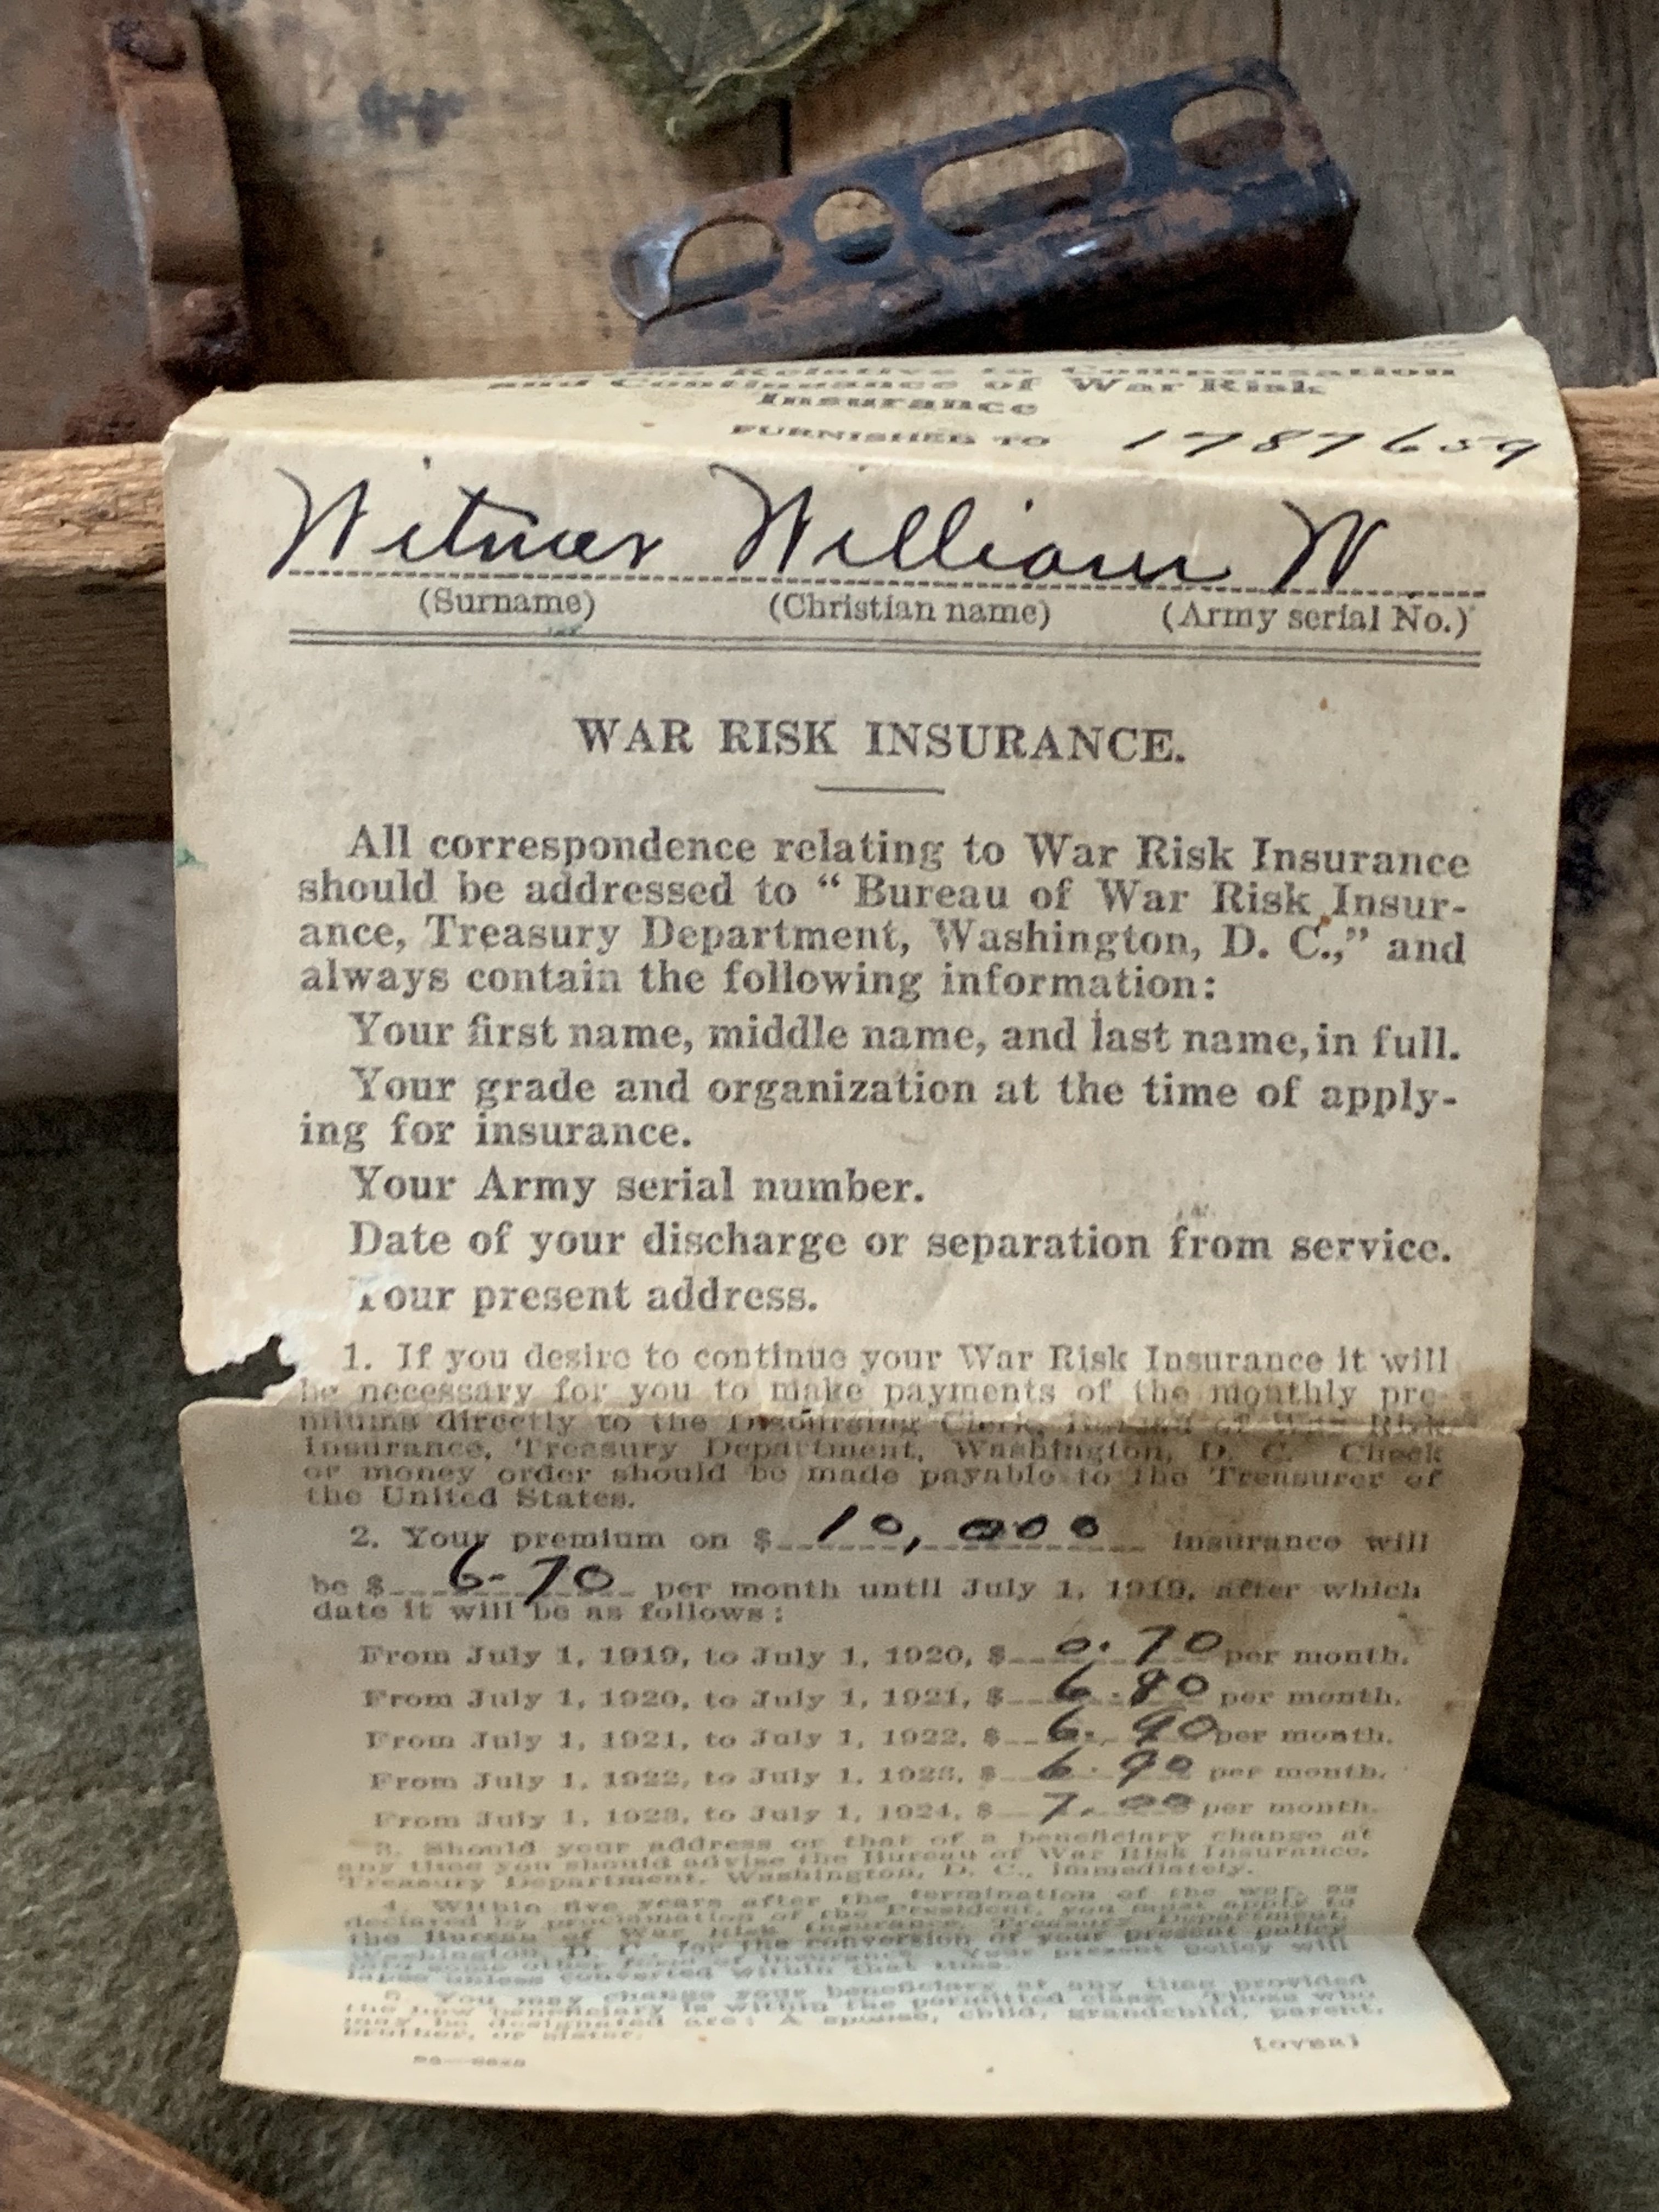 Relative to Compensation
and Continuance of War Risk
Insurance
FURNISHED TO 1787659
Witmer William W
(Surname) (Christian name) (Army serial No.)
WAR RISK INSURANCE.
All correspondence relating to War Risk Insurance
should be addressed to “ Bureau of War Risk Insur-
ance, Treasury Department, Washington, D. C.,” and
always contain the following information:
Your first name, middle name, and last name, in full.
Your grade and organization at the time of apply-
ing for insurance.
Your Army serial number.
Date of your discharge or separation from service.
Your present address.
1. If you desire to continue your War Risk Insurance it will
be necessary for you to make payments of the monthly pre-
miums directly to the Disbursing Clerk, Bureau of War Risk
Insurance, Treasury Department, Washington, D. C. Check
or money order should be made payable to the Treasurer of
the United States.
2. Your premium on $ 10,000 insurance will
be $ 6-70 per month until July 1, 1919, after which
date it will be as follows:
From July 1, 1919, to July 1, 1920, $ 6.70 per month.
From July 1, 1920, to July 1, 1921, $ 6.80 per month.
From July 1, 1921, to July 1, 1922, $ 6.90 per month.
From July 1, 1922, to July 1, 1923, $ 6.90 per month.
From July 1, 1923, to July 1, 1924, $ 7.00 per month.
3. Should your address or that of a beneficiary change at
any time you should advise the Bureau of War Risk Insurance,
Treasury Department, Washington, D. C., immediately.
4. Within five years after the termination of the war, as
declared by proclamation of the President, you must apply to
the Bureau of War Risk Insurance, Treasury Department,
Washington, D. C., for the conversion of your present policy
into some other form of insurance. Your present policy will
lapse unless converted within that time.
5. You may change your beneficiary at any time provided
the new beneficiary is within the permitted class. Those who
may be designated are: A spouse, child, grandchild, parent,
brother, or sister.
[OVER]